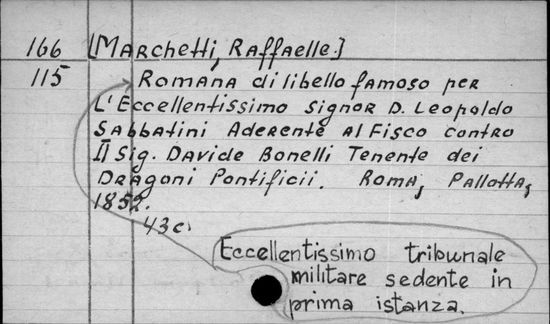 166 [Marchetti, Raffaelle.]
115 Romana di libello famoso per
L'Eccellentissimo Signor D. Leopoldo
Sabbatini Aderente al Fisco contro
Il Sig. Davide Bonelli Tenente dei
Dragoni Pontificii. Roma, Pallotta,
1852.
43c.
Eccellentissimo tribunale
militare sedente in
prima istanza.